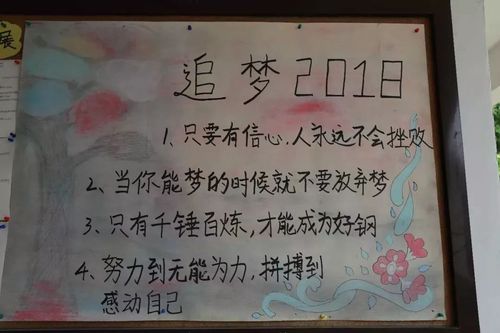 展
追梦2018
1、只要有信心.人永远不会挫败
2、当你能梦的时候就不要放弃梦
3、只有千锤百炼,才能成为好钢
4、努力到无能为力,拼搏到
感动自己